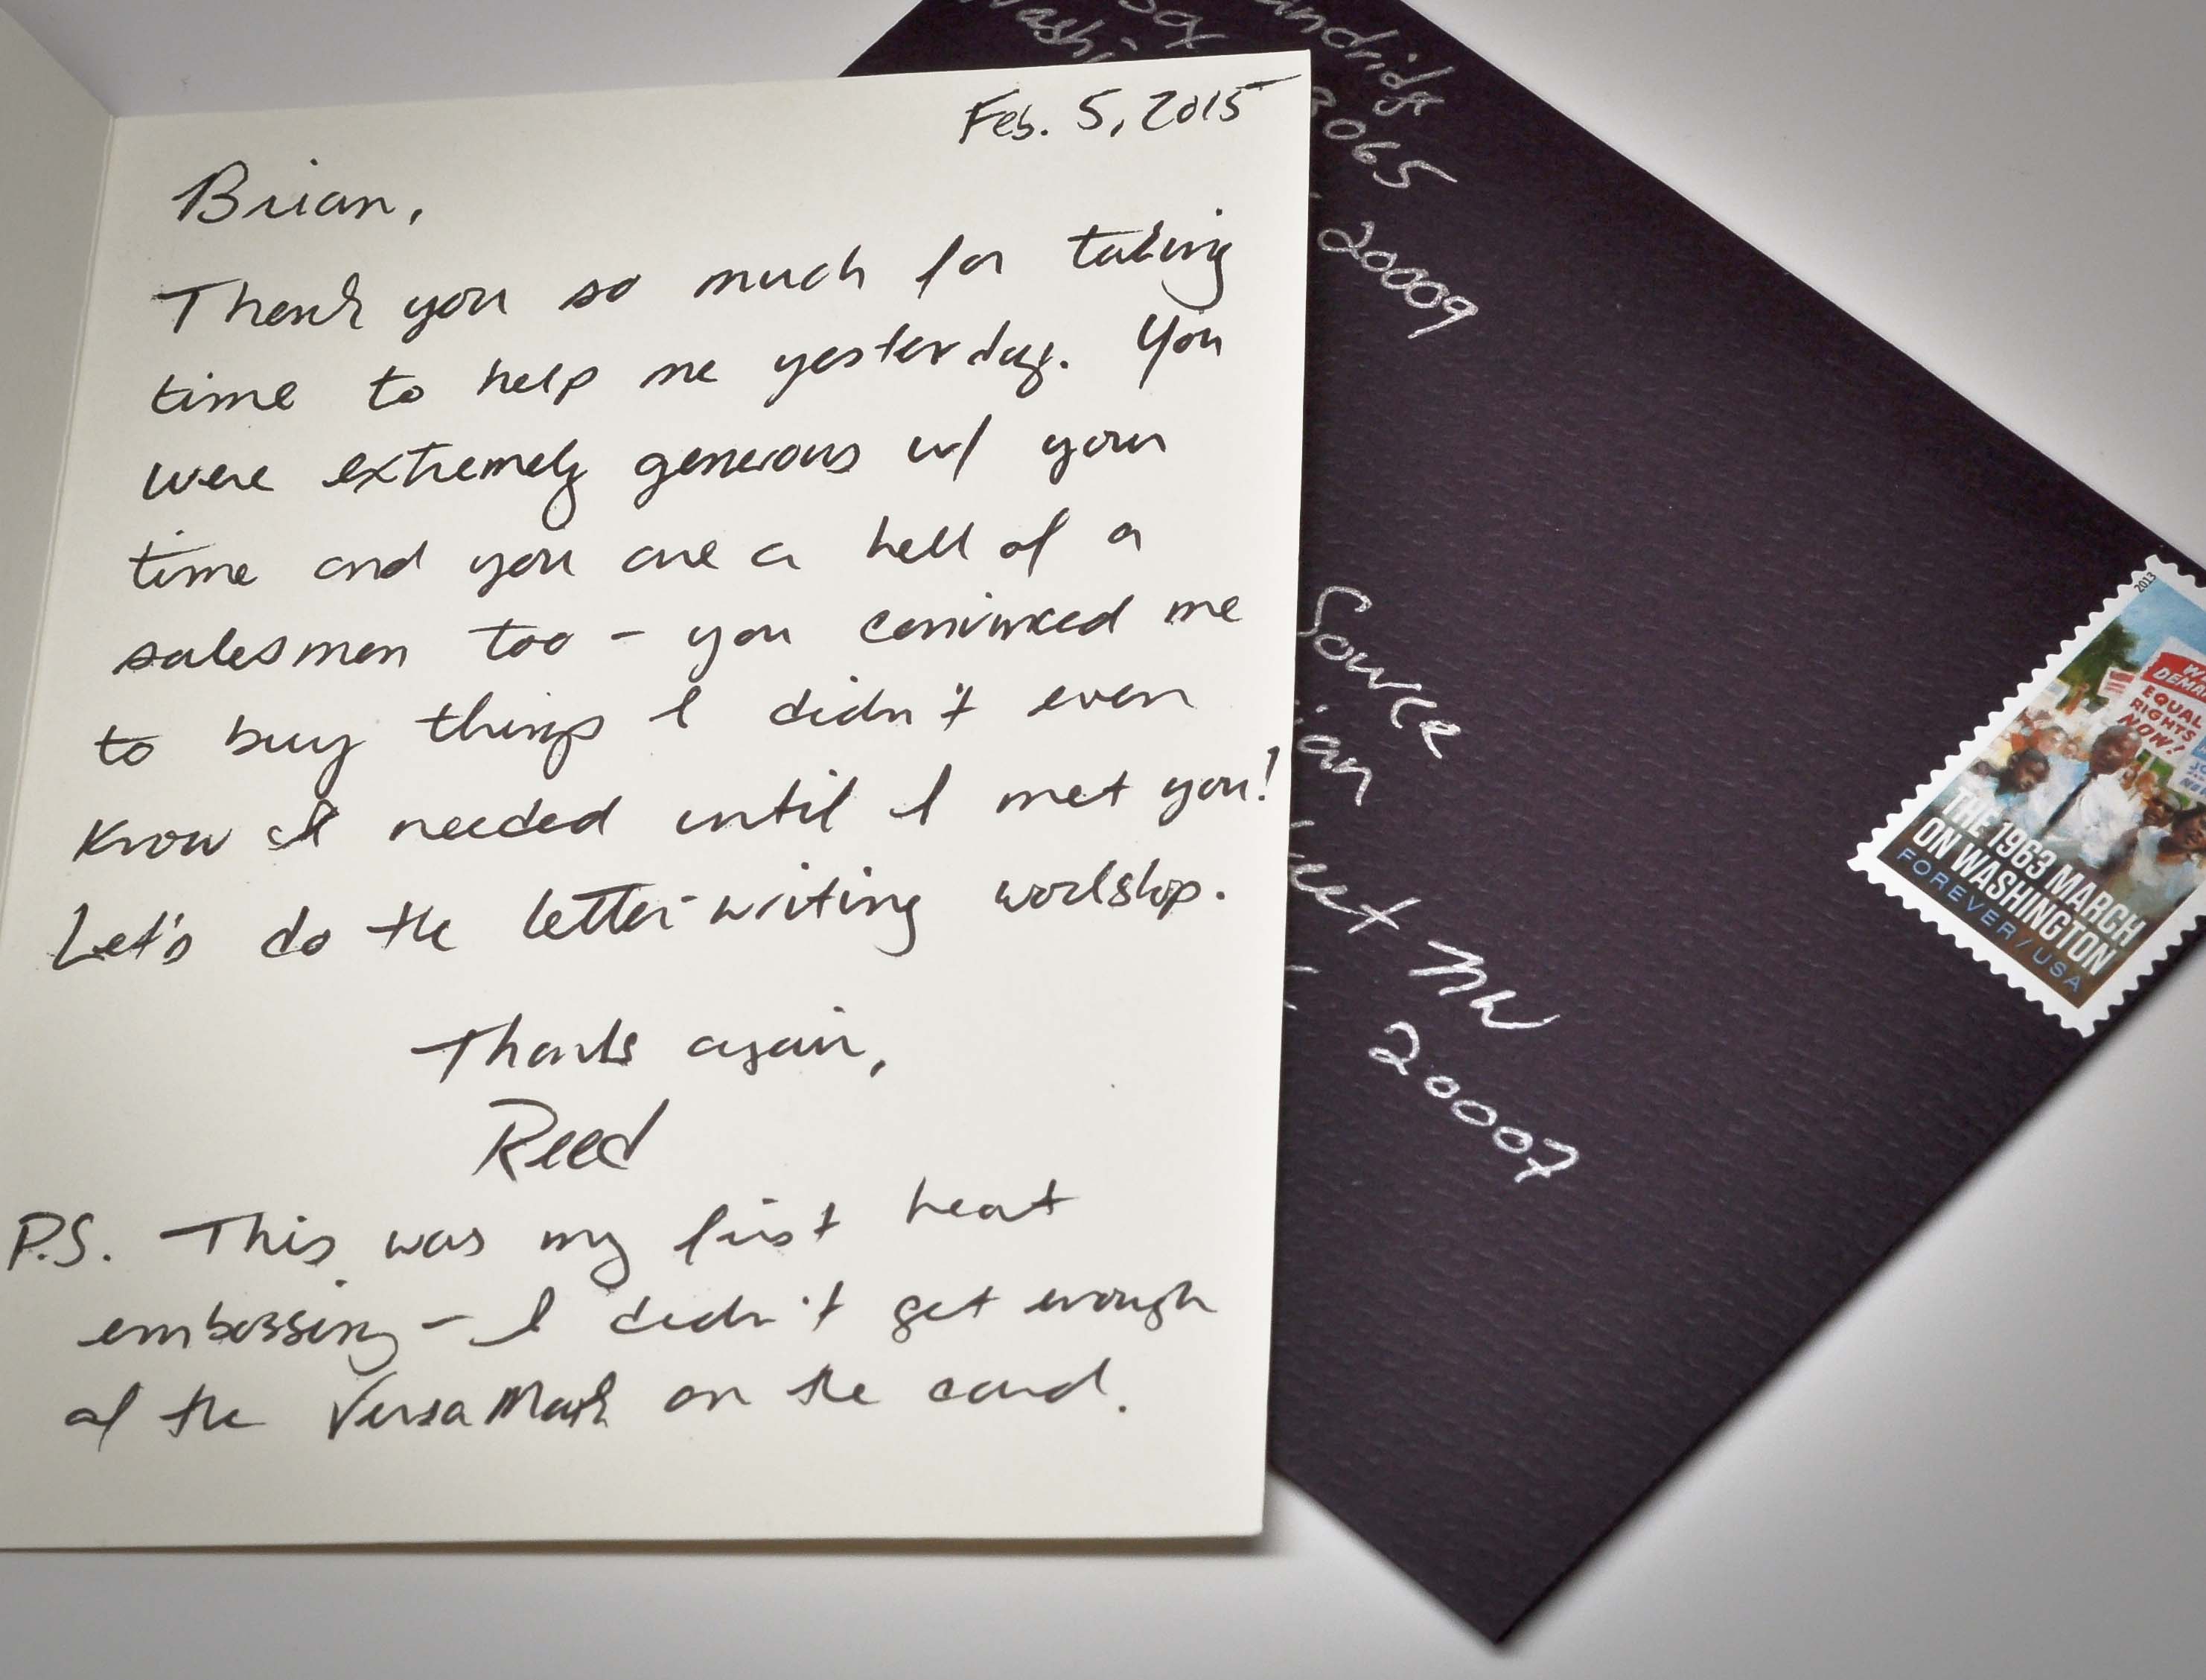 Feb. 5, 2015
Brian,
Thank you so much for taking
time to help me yesterday. You
were extremely generous w/ your
time and you are a hell of a
salesman too - you convinced me
to buy things I didn't even
know I needed until I met you!
Let's do the letter-writing workshop.
Thanks again,
Reed
P.S. This was my first heat
embossing - I didn't get enough
of the VersaMark on the card.
andridge
ox 3065
Washi
20009
Source
ian
reet NW
20007
2013
EQUAL
RIGHTS
NOW!
THE 1963 MARCH
ON WASHINGTON
FOREVER / USA